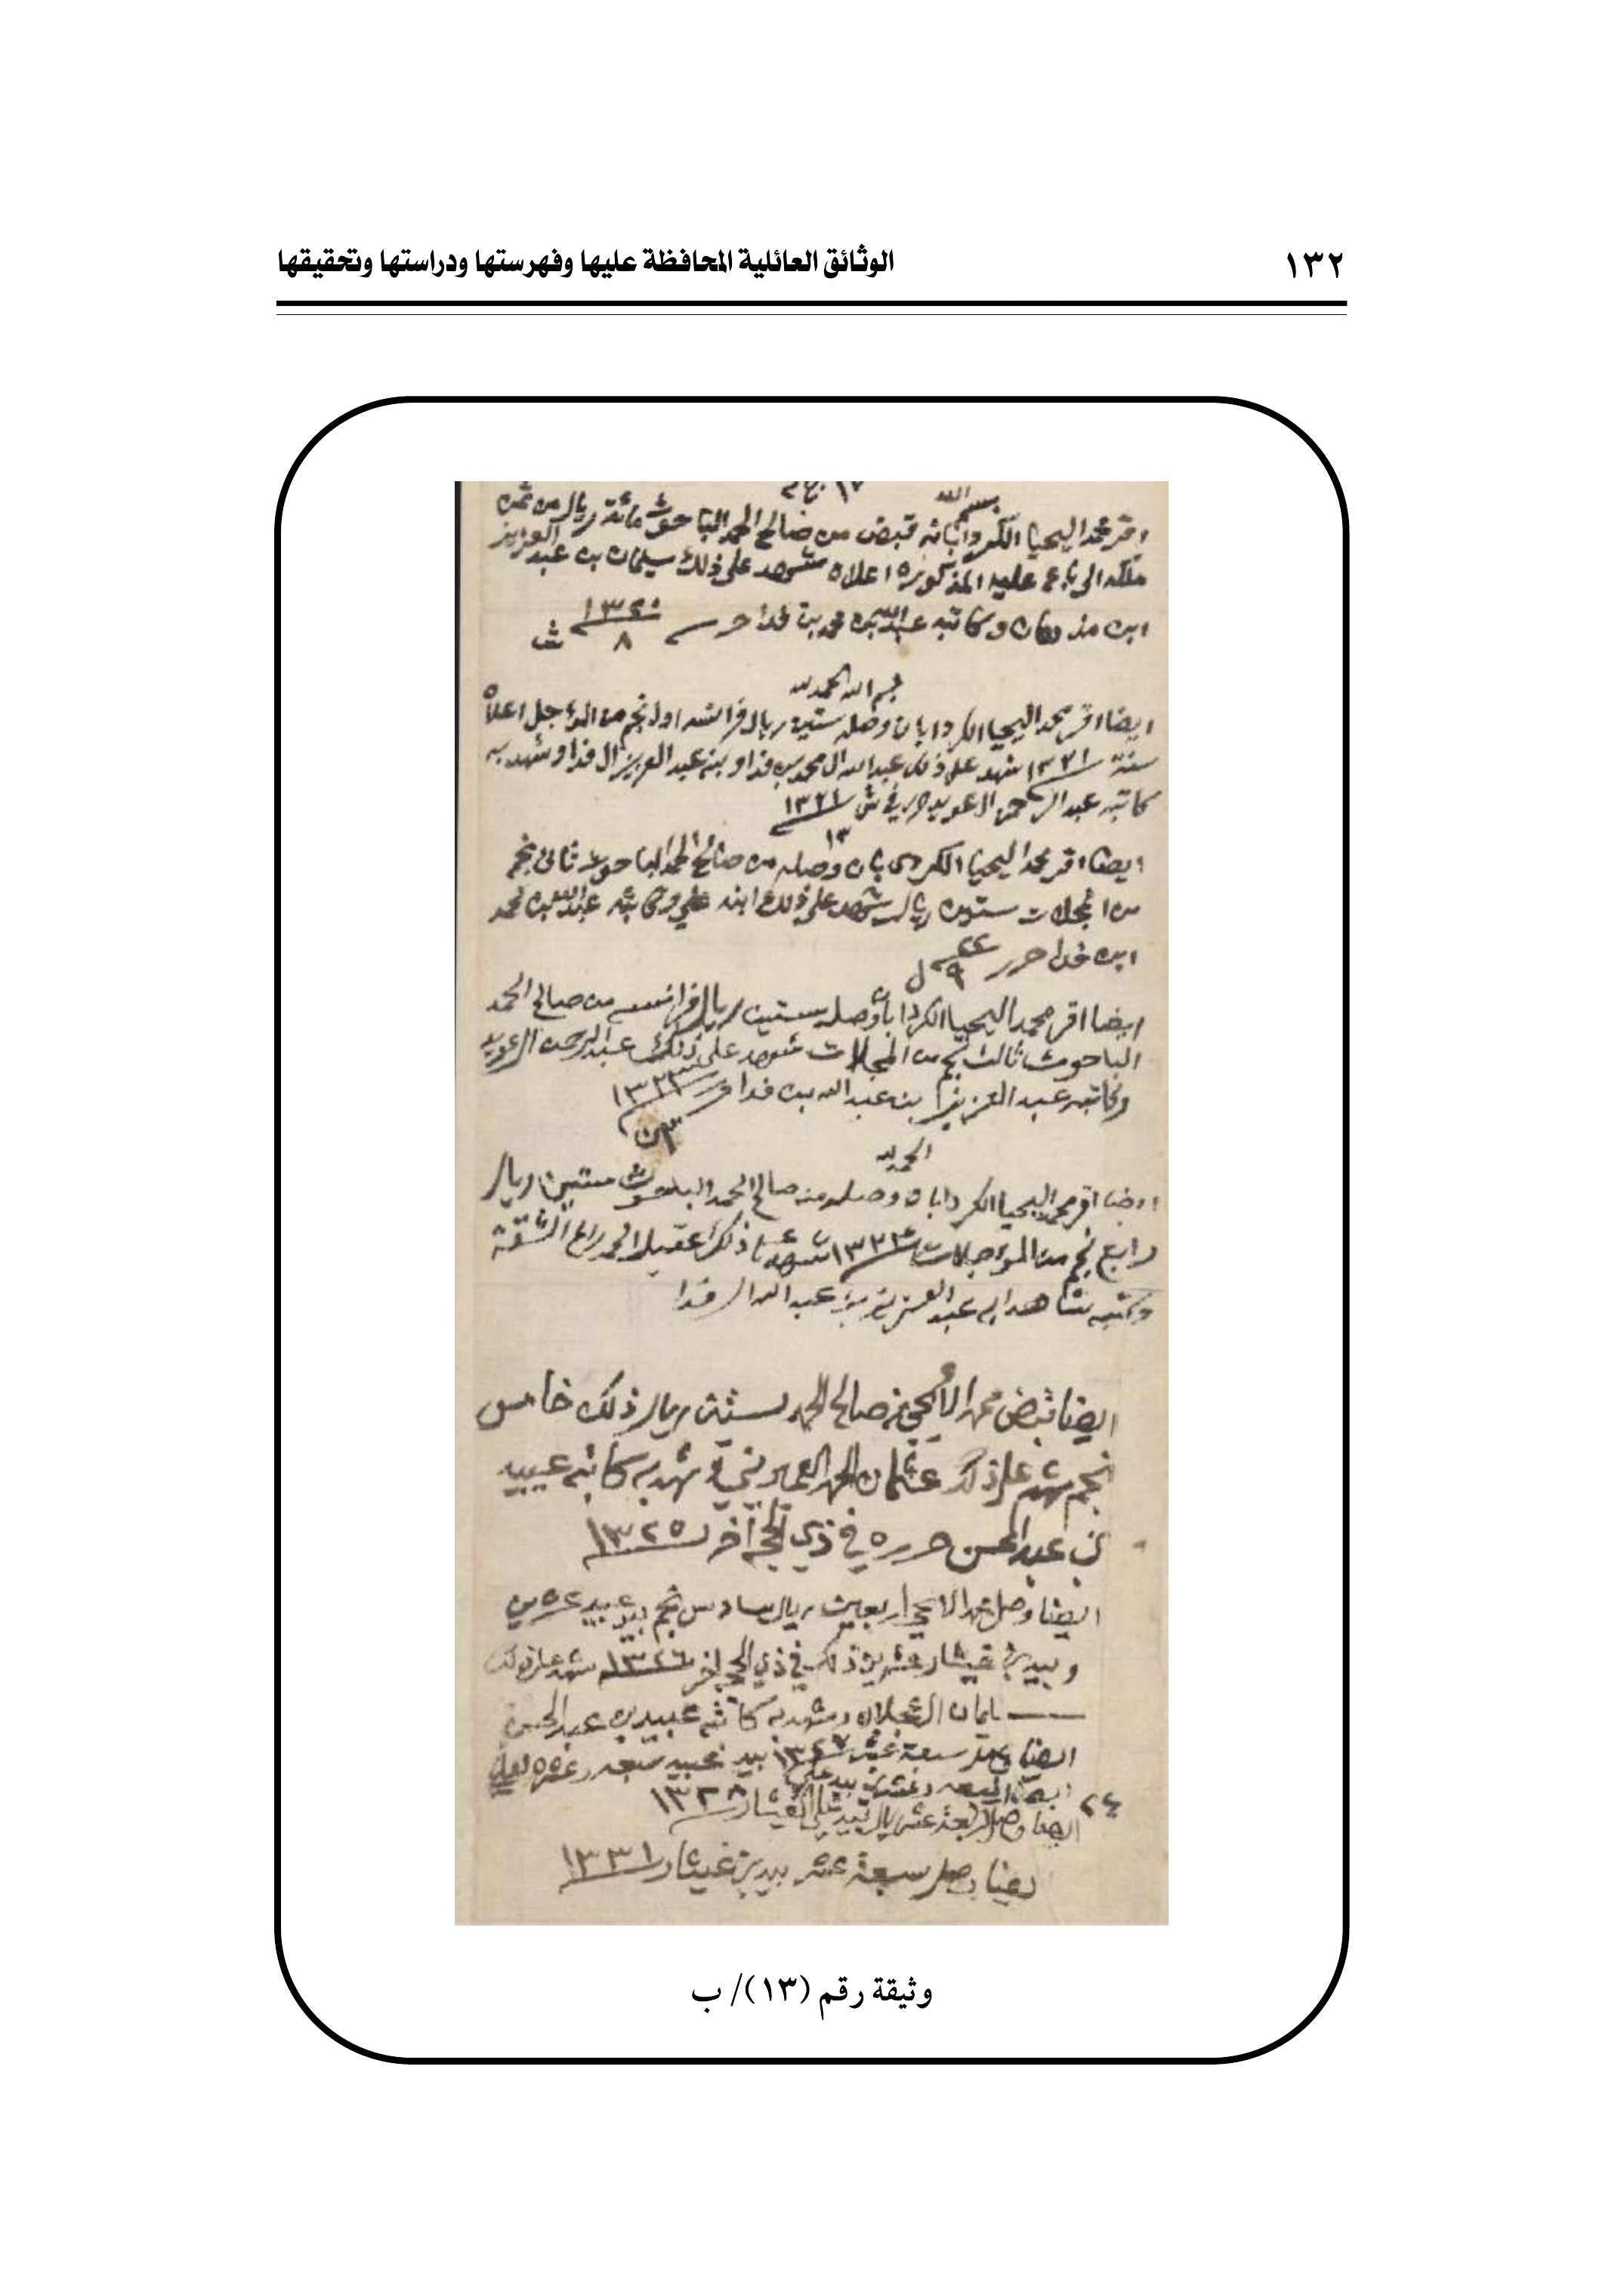 ١٣٢
الوثائق العائلية المحافظة عليها وفهرستها ودراستها وتحقيقها
بسم الله
اقر محمد اليحيا الكردا بانه قبض من صالح الحمد الباحوث مائة ريال من ثمن
ملكه الى باع عليه المذكوره اعلاه شهد على ذلك سليمان بن عبد العزيز
ابن وكاتبه عبدالله بن محمد بن فدا حرر ١٣٢٠
٨ ش
بسم الله الحمد لله
ايضا اقر محمد اليحيا الكردا بان وصله ستين ريال فرانسه اول نجم من المؤجل اعلاه
سنة ١٣٢١ شهد على ذلك عبدالله ال محمد بن فدا وبنه عبد العزيز ال فدا وشهد به
كاتبه عبد الرحمن العويد حرر في ش ١٣٢١
١٣
ايضا اقر محمد اليحيا الكردى بان وصله من صالح الحمد الباحوث ثانى نجم
من المجلات ستون ريال شهد على ذلك ابنه علي وكاتبه عبدالله بن محمد
ابن فدا حرر ٢٢
٩ ل
ايضا اقر محمد اليحيا الكردا بان وصله ستين ريال فرانسه من صالح الحمد
الباحوث ثالث نجم من المجلات شهد على ذلك عبد الرحمن العويد
وكاتبه عبد العزيز بن عبد الله بن فدا ١٣٢٣
الحمد لله
ايضا اقر محمد اليحيا الكردا بان وصله من صالح الحمد الباحوث ستين ريال
رابع نجم من المؤجلات ١٣٢٤ شهد على ذلك عقيل الحمد راع الشقة
وكتبه شاهد به عبد العزيز بن عبد الله ال فدا
ايضا قبض محمد من صالح الحمد ستين ريال ذلك خامس
نجم شهد على ذلك عثمان الحمد وشهد به كاتبه عبيد
بن عبد المحسن حرره في ذي الحجه آخر ١٣٢٥
ايضا وصل محمد اربعين ريال سادس نجم بيد عبيد عشرين
وبيد بن غيثار عشرين ذلك في ذي الحجه اخر ١٣٢٦ شهد على ذلك
وشهد به كاتبه عبيد بن عبد المحسن
ايضا وصله سبعة عشر ١٣٢٧ بيد عبيد
٢٤
ايضا وصله اربعة عشر ريال بيد ١٣٢٨
ايضا وصله سبعة عشر بيد بن غيثار ١٣٣١
وثيقة رقم (١٣)/ ب